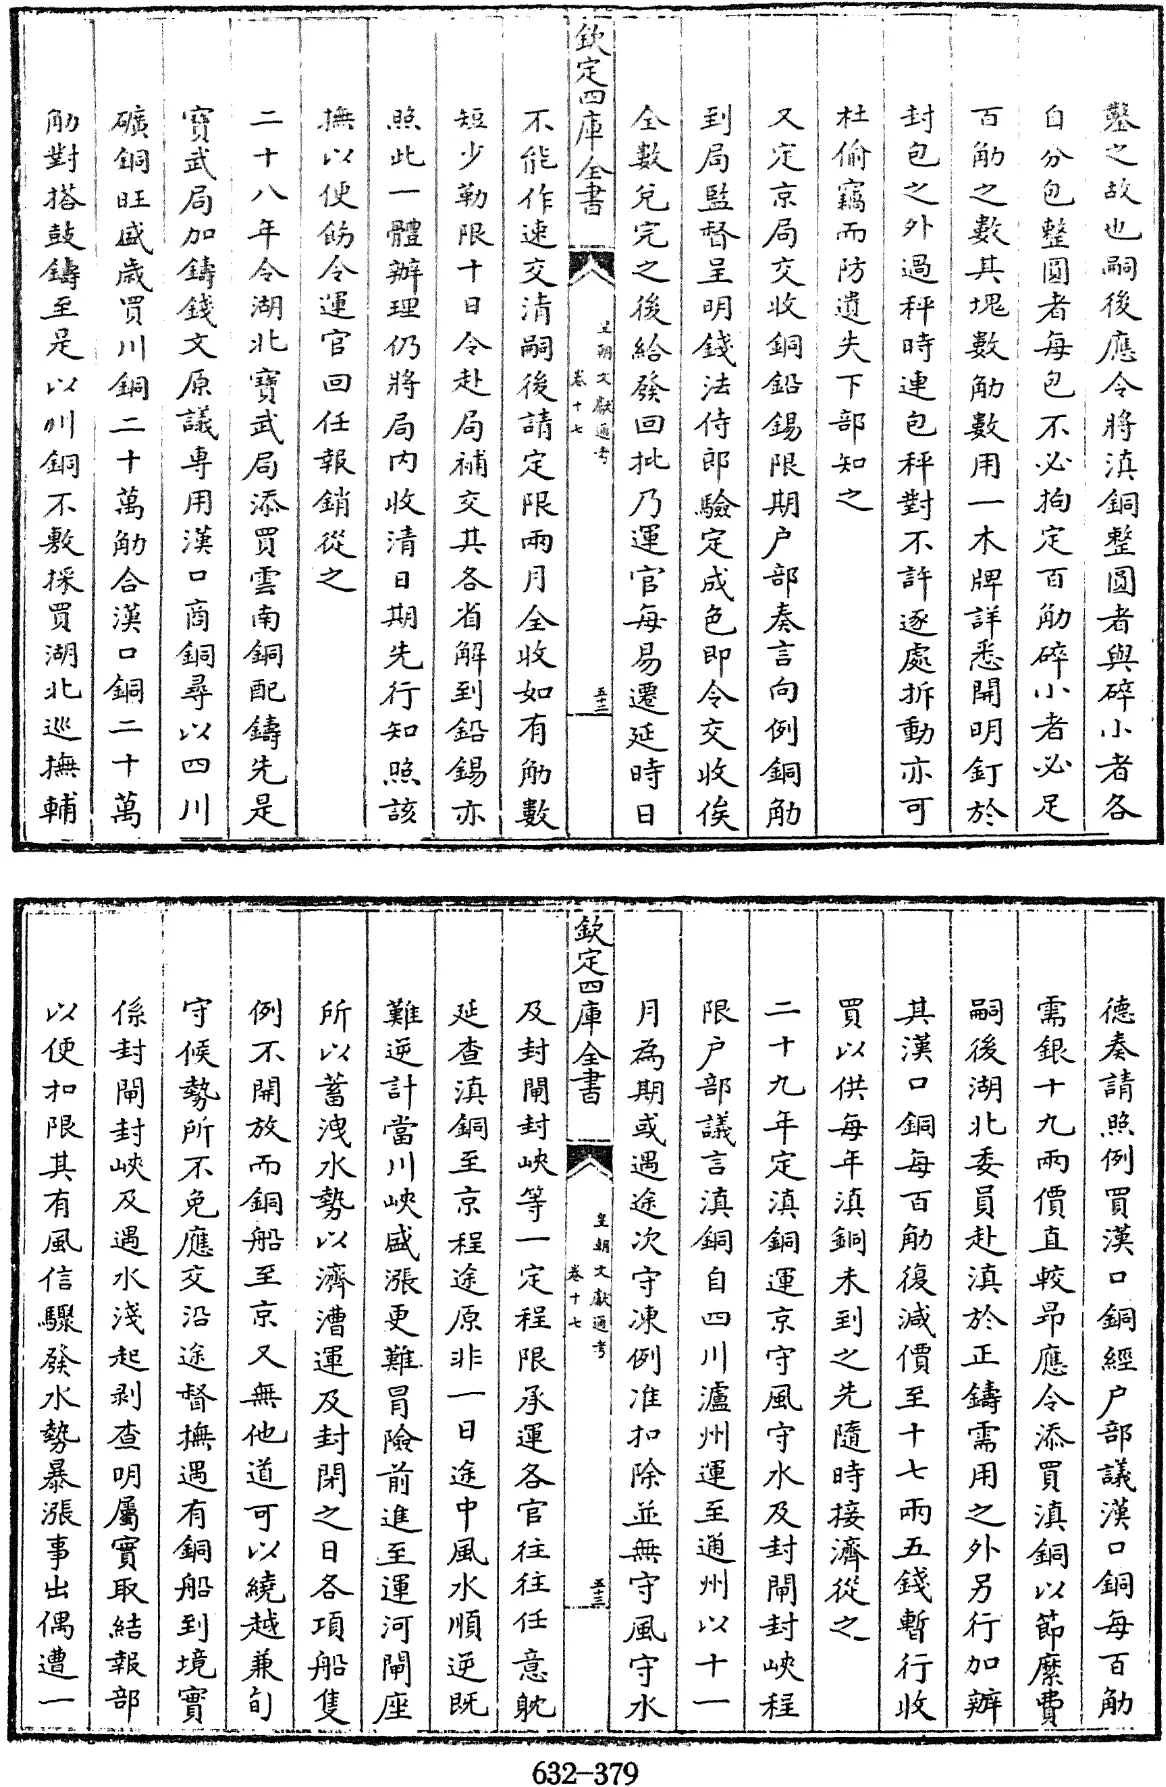 鑿之故也嗣後應令將滇銅整圓者與碎小者各
自分包整圓者每包不必拘定百觔碎小者必足
百觔之數其塊數觔數用一木牌詳悉開明釘於
封包之外過秤時連包秤對不許逐處拆動亦可
杜偷竊而防遺失下部知之
又定京局交收銅鉛錫限期户部奏言向例銅觔
到局監督呈明錢法侍郎驗定成色即令交收俟
全數兌完之後給發回批乃運官每易遷延時日
欽定四庫全書
皇朝文獻通考
卷十七
五十三
不能作速交清嗣後請定限兩月全收如有觔數
短少勒限十日令赴局補交其各省解到鉛錫亦
照此一體辦理仍將局内收清日期先行知照該
撫以便飭令運官回任報銷從之
二十八年令湖北寶武局添買雲南銅配鑄先是
寶武局加鑄錢文原議専用漢口商銅尋以四川
礦銅旺盛歲買川銅二十萬觔合漢口銅二十萬
觔對搭鼓鑄至是以川銅不敷採買湖北巡撫輔
德奏請照例買漢口銅經户部議漢口銅每百觔
需銀十九兩價直較昂應令添買滇銅以節縻費
嗣後湖北委員赴滇於正鑄需用之外另行加辦
其漢口銅每百觔復減價至十七兩五錢暫行收
買以供每年滇銅未到之先隨時接濟從之
二十九年定滇銅運京守風守水及封閘封峽程
限户部議言滇銅自四川瀘州運至通州以十一
月為期或遇途次守凍例准扣除並無守風守水
欽定四庫全書
皇朝文獻通考
卷十七
五十三
及封閘封峽等一定程限承運各官往往任意躭
延查滇銅至京程途原非一日途中風水順逆既
難逆計當川峽盛漲更難冒險前進至運河閘座
所以蓄洩水勢以濟漕運及封閉之日各項船隻
例不開放而銅船至京又無他道可以繞越兼旬
守候勢所不免應交沿途督撫遇有銅船到境實
係封閘封峽及遇水淺起剥查明屬實取結報部
以便扣限其有風信驟發水勢暴漲事出偶遭一
632-379